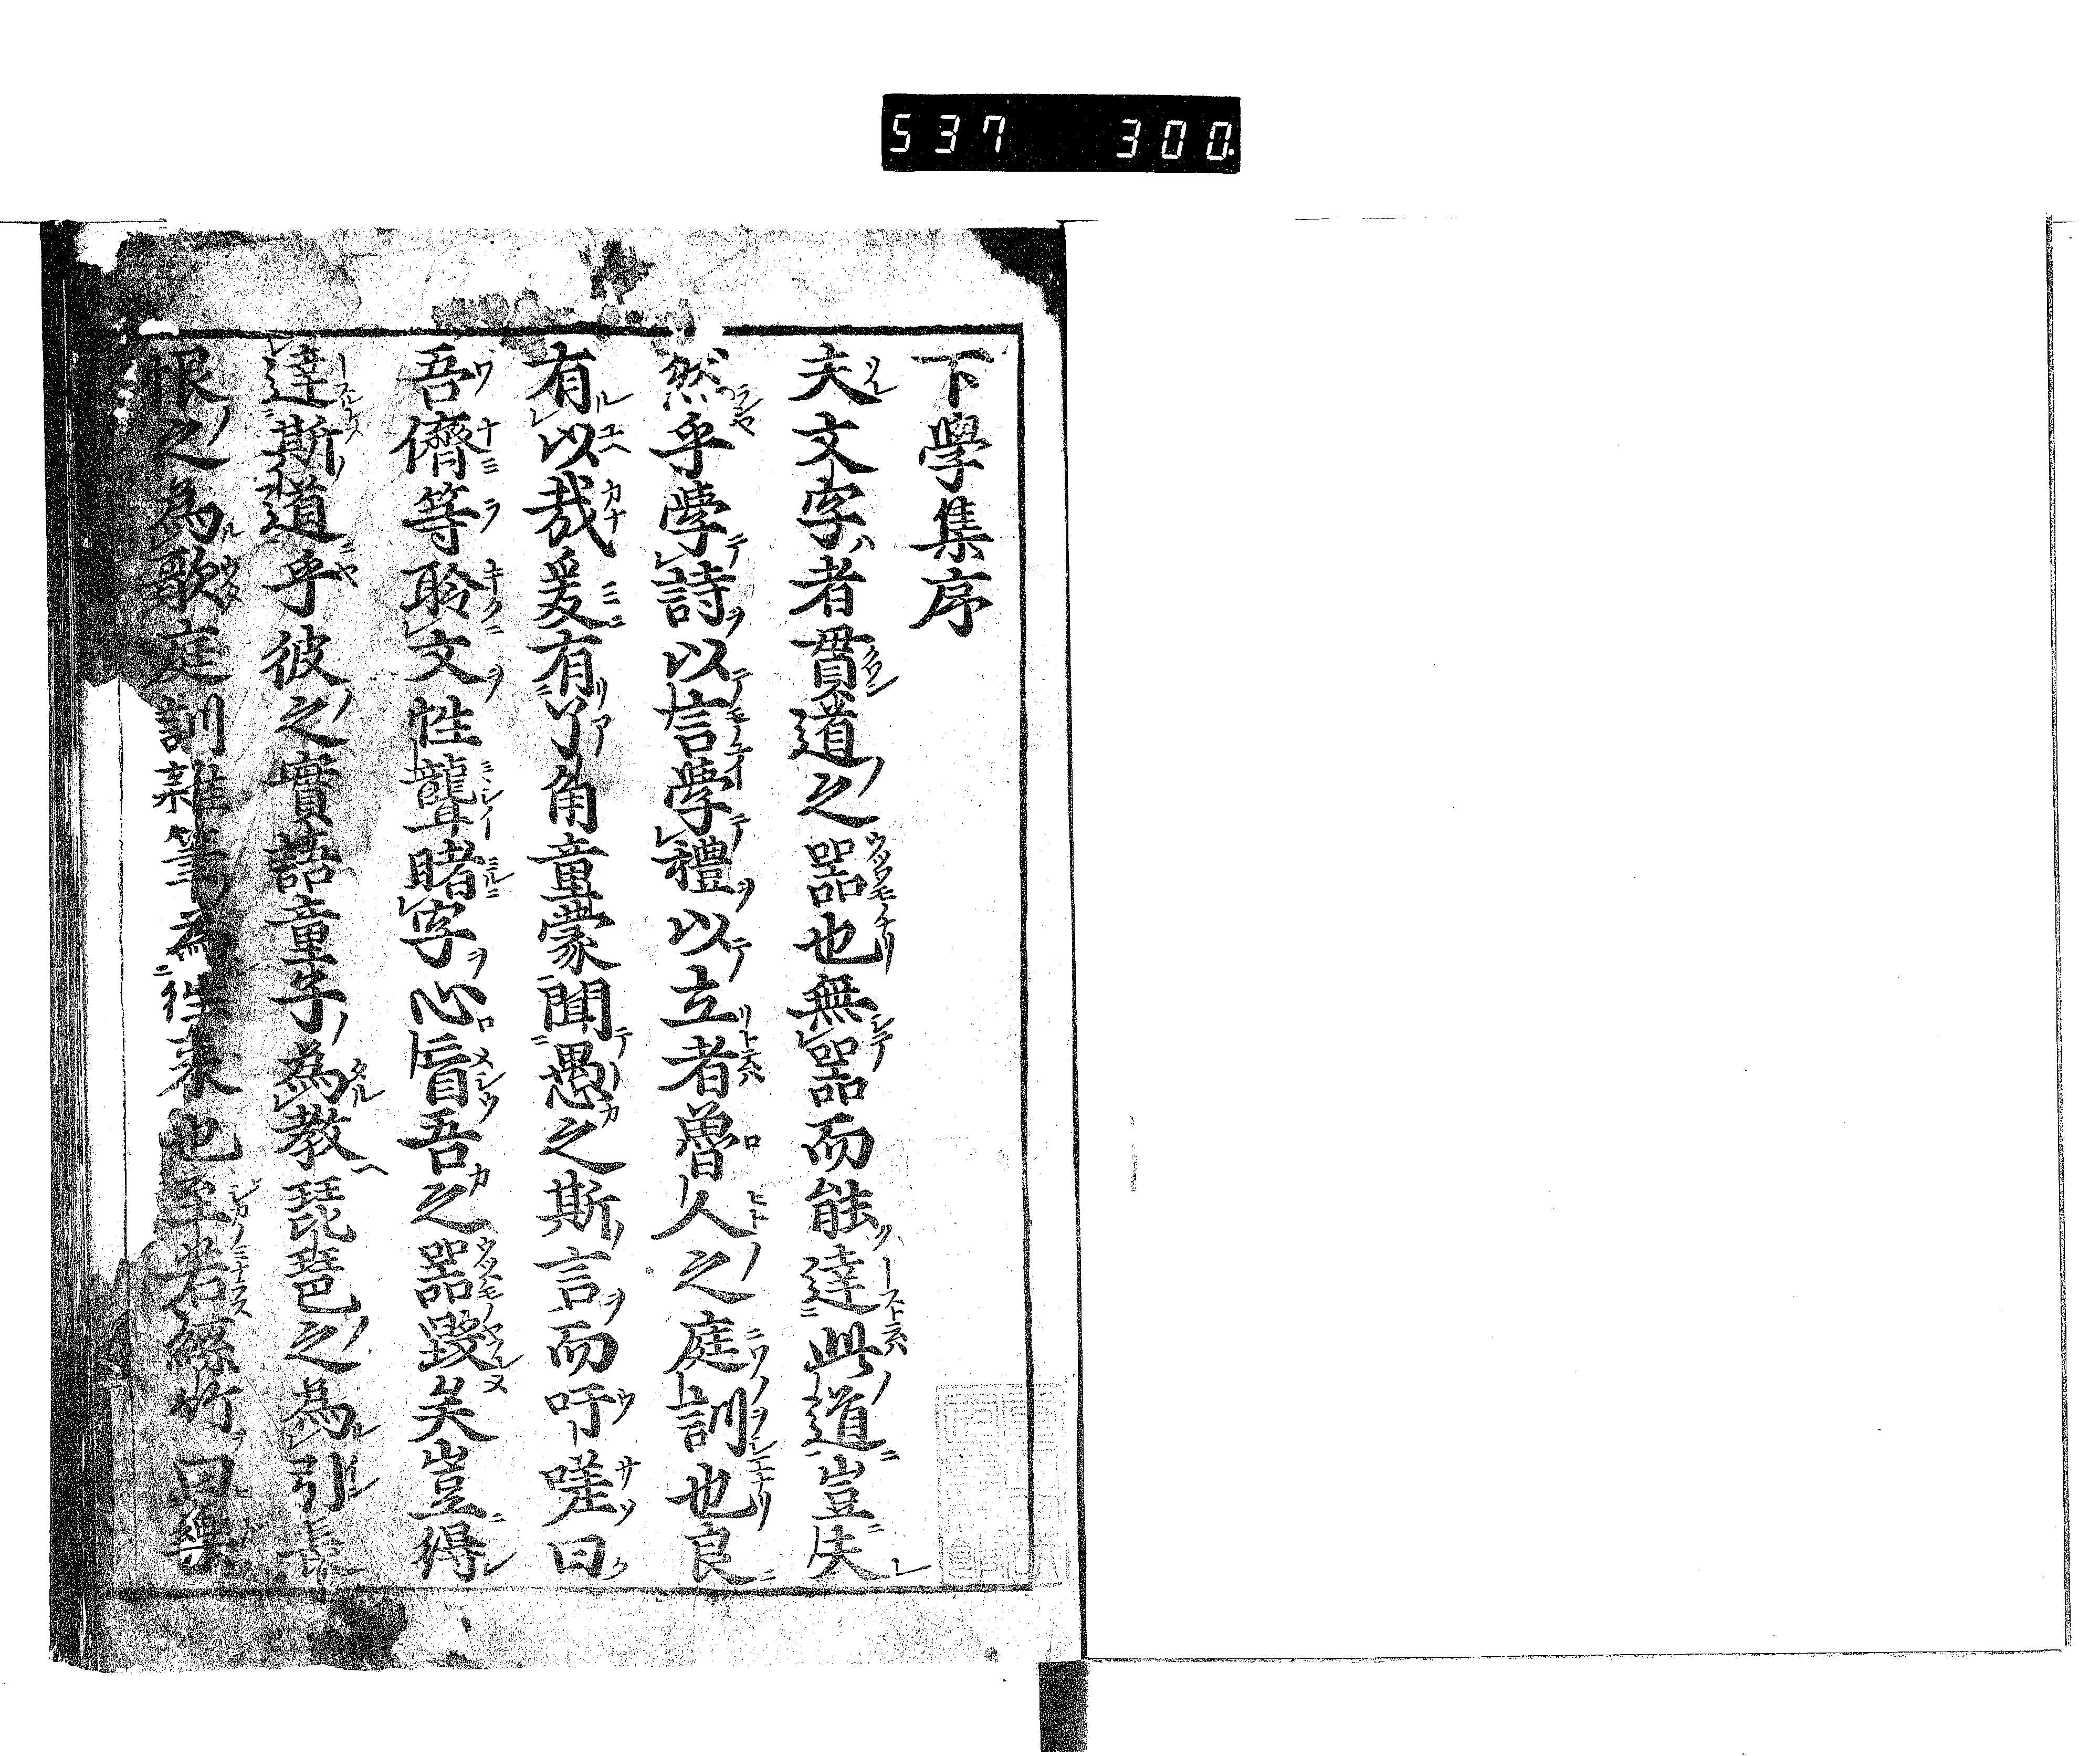 537 300
下學集序
夫文字者貫道之器也無器而能達此道豈夫
然乎學詩以言學禮以立者魯人之庭訓也良
有以哉爰有丫角童蒙聞愚之斯言而吁嗟曰
吾儕等聆文性聾睹字心盲吾之器毀矣豈得
達斯道乎彼之實語童子為教琵琶之為引長
恨之為歌庭訓雜筆為徃来也至若絲竹曰樂